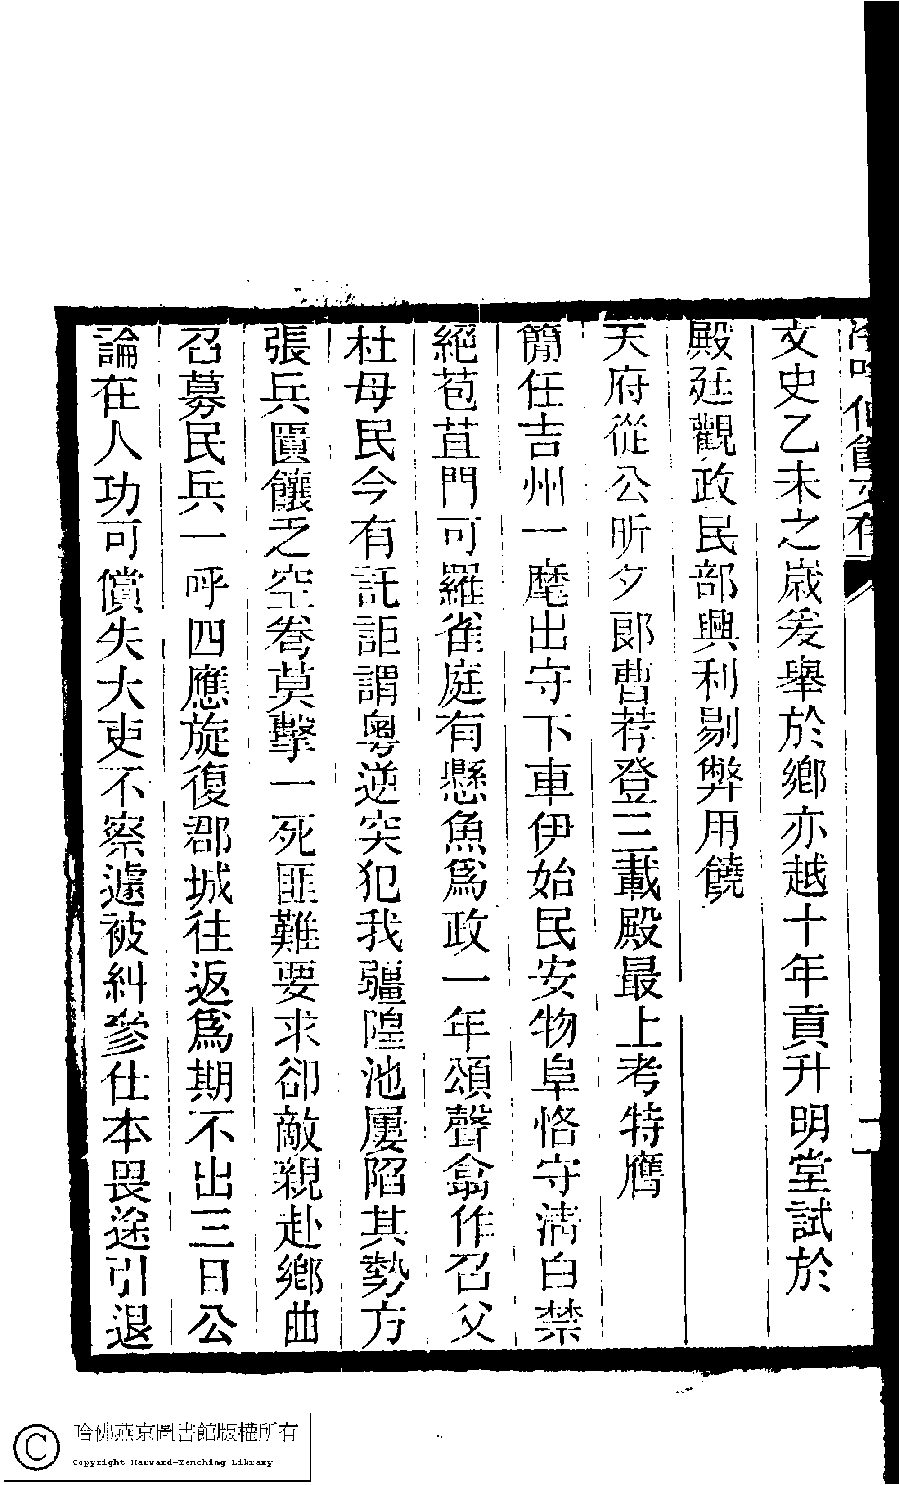 文史乙未之歲爰舉於鄉亦越十年貢升明堂試於
殿廷觀政民部興利剔弊用饒
天府從公昕夕郎曹荐登三載殿最上考特膺
簡任吉州一麾出守下車伊始民安物阜恪守淸白禁
絕苞苴門可羅雀庭有懸魚爲政一年頌聲翕作召父
杜母民今有託詎謂粵逆突犯我疆隍池屢陷其勢方
張兵匱饟乏空拳莫擊一死匪難要求卻敵親赴鄉曲
召募民兵一呼四應旋復郡城往返爲期不出三日公
論在人功可償失大吏不察遽被糾參仕本畏途引退
哈佛燕京圖書館版權所有
Copyright Harvard-Yenching Library